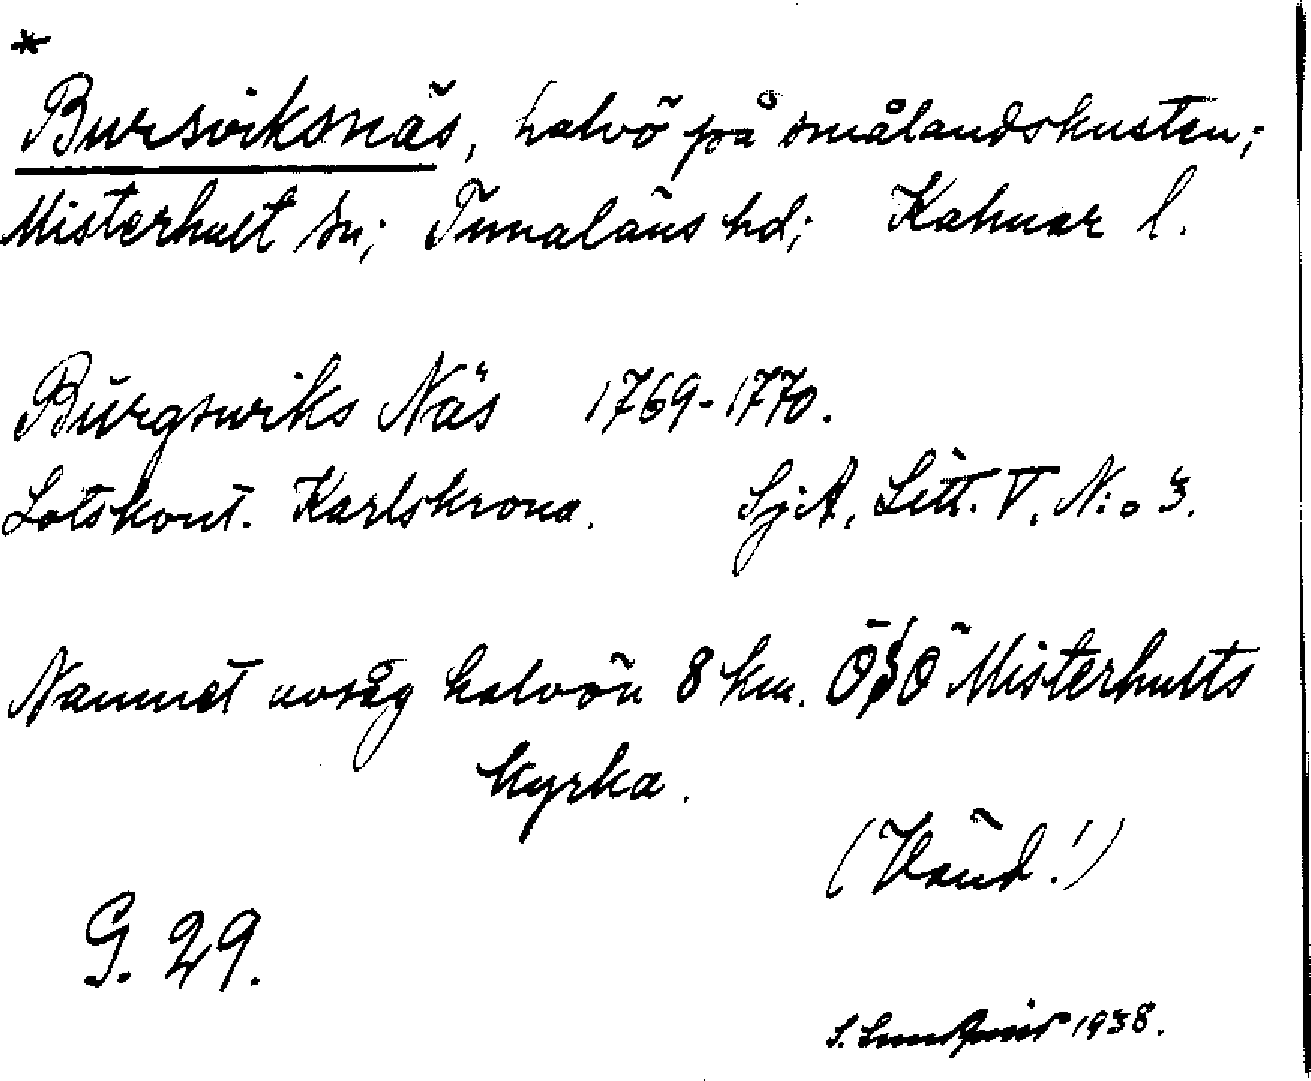 *
Bursviksnäs, halvö på smålandskusten;
Misterhult sn; Tunaläns hd; Kalmar l.
Burgswiks Näs 1769-1770.
Lotskont. Karlskrona. SjA, Litt. V, N:o 3.
Namnet avsåg halvön 8 km. ÖSÖ Misterhults
kyrka.
(Vänd!)
G. 29.
S. Lundqvist 1938.